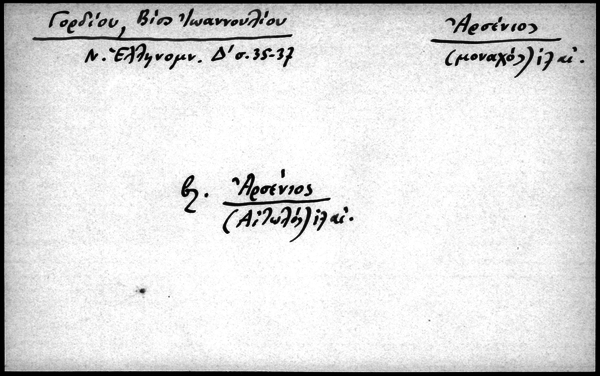 Γορδίου, Βίος Ἰωαννουλίου
Ν. Ἑλληνομν. Δ' σ. 35-37
Ἀρσένιος
(μοναχός) ιζ αἰ.
βλ. Ἀρσένιος
(Αἰτωλός) ιζ αἰ.